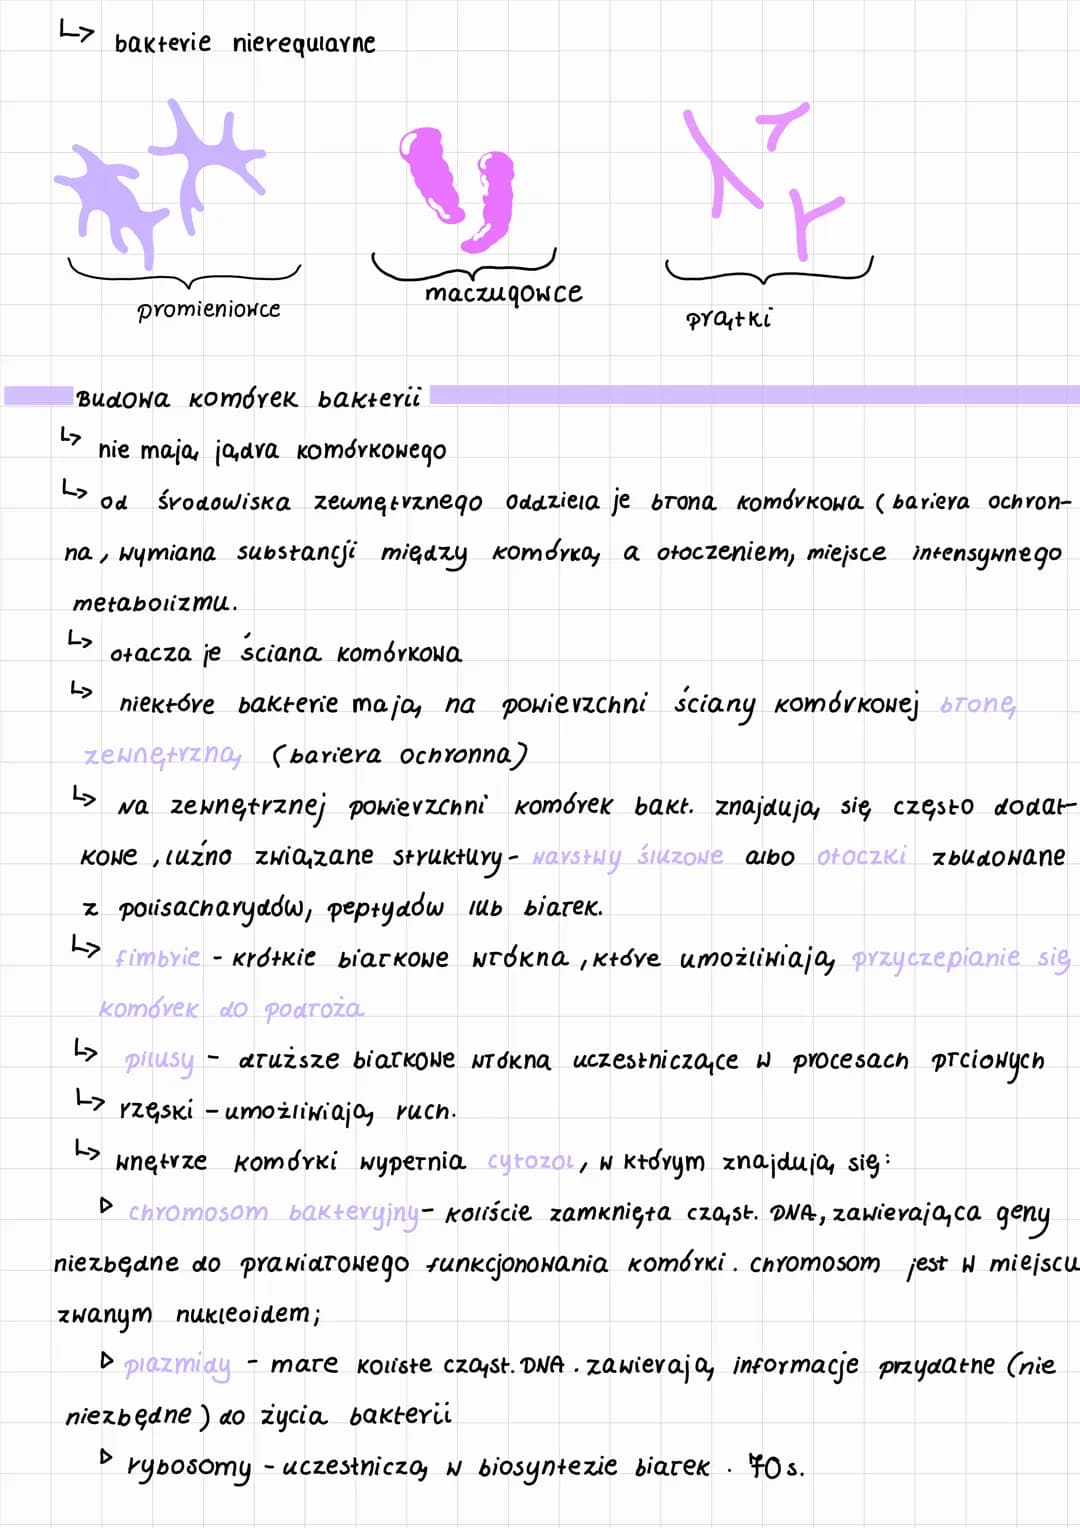 ↳ bakterie nieregularne
promieniowce
maczugowce
prątki
Budowa komórek bakterii
↳ nie mają jądra komórkowego
↳ od środowiska zewnętrznego oddziela je błona komórkowa (bariera ochron-
na, wymiana substancji między komórką a otoczeniem, miejsce intensywnego
metabolizmu.
↳ otacza je ściana komórkowa
↳ niektóre bakterie mają na powierzchni ściany komórkowej błonę
zewnętrzną (bariera ochronna)
↳ Na zewnętrznej powierzchni komórek bakt. znajdują się często dodat-
kowe, luźno związane struktury - warstwy śluzowe albo otoczki zbudowane
z polisacharydów, peptydów lub białek.
↳ fimbrie - krótkie białkowe włókna, które umożliwiają przyczepianie się
komórek do podłoża
↳ pilusy - dłuższe białkowe włókna uczestniczące w procesach płciowych
↳ rzęski - umożliwiają ruch.
↳ wnętrze komórki wypełnia cytozol, w którym znajdują się:
▷ chromosom bakteryjny - koliście zamknięta cząst. DNA, zawierająca geny
niezbędne do prawidłowego funkcjonowania komórki. chromosom jest w miejscu
zwanym nukleoidem;
▷ plazmidy - małe koliste cząst. DNA. zawierają informacje przydatne (nie
niezbędne) do życia bakterii
▷ rybosomy - uczestniczą w biosyntezie białek. 70s.